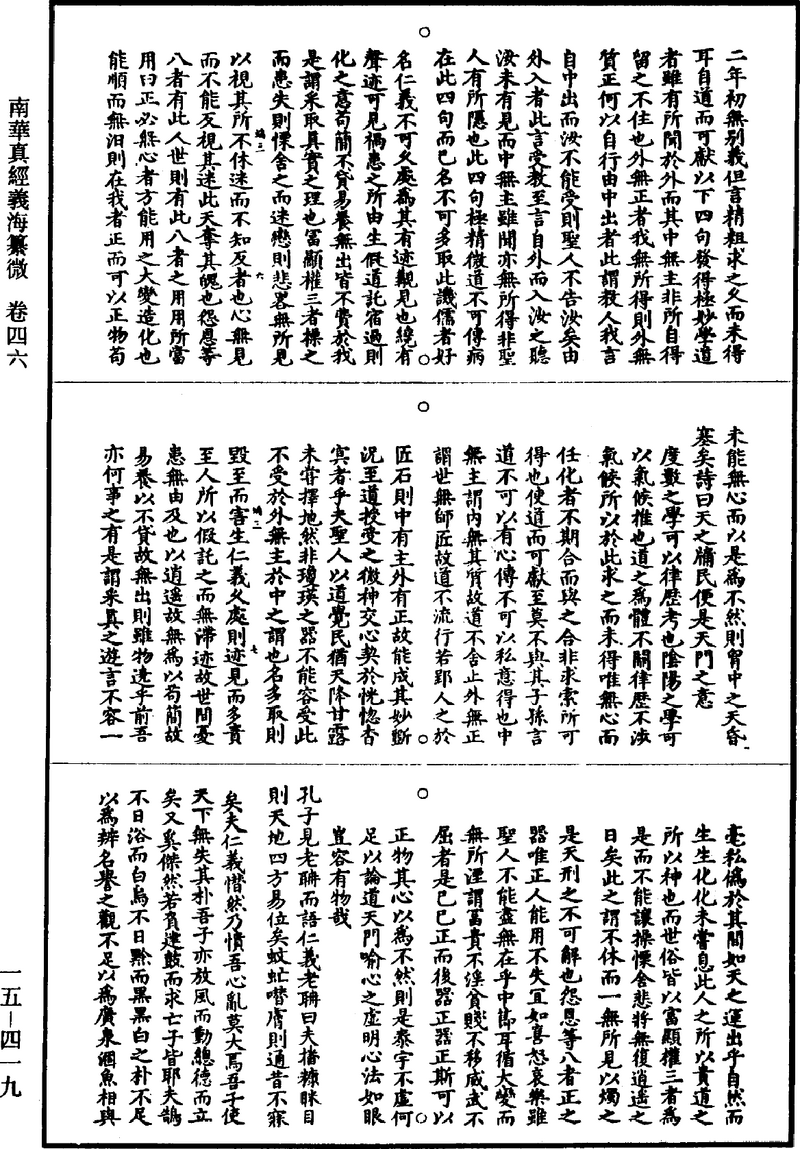 南華真經義海纂微　卷四六
一五－四一九
二年初無別義但言精粗求之久而未得
耳自道而可獻以下四句發得極妙學道
者雖有所聞於外而其中無主非所自得
留之不住也外無正者我無所得則外無
質正何以自行由中出者此謂教人我言
自中出而汝不能受則聖人不告汝矣由
外入者此言受教至言自外而入汝之聽
汝未有見而中無主雖聞亦無所得非聖
人有所隱也此四句極精微道不可傳病
在此四句而已名不可多取此譏儒者好
名仁義不可久處為其有迹覯見也纔有
聲迹可見禍患之所由生假道託宿過則
化之意苟簡不貸易養無出皆不費於我
是謂采取真實之理也富顯權三者操之
而患失則慄舍之而迷戀則悲畧無所見
以視其所不休迷而不知反者也心無見
而不能反視其迷此天奪其魄也怨恩等
八者有此人世則有此八者之用用所當
用曰正必無心者方能用之大變造化也
能順而無汩則在我者正而可以正物苟
未能無心而以是為不然則胷中之天昏
塞矣詩曰天之牖民便是天門之意
度數之學可以律歷考也陰陽之學可
以氣候推也道之為體不關律歷不涉
氣候所以於此求之而未得唯無心而
任化者不期合而與之合非求索所可
得也使道而可獻至莫不與其子孫言
道不可以有心傳不可以私意得也中
無主謂內無其質故道不舍止外無正
謂世無師匠故道不流行若郢人之於
匠石則中有主外有正故能成其妙斷
況至道授受之微神交心契於恍惚杳
冥者乎夫聖人以道覺民猶天降甘露
未甞擇地然非瓊瑛之器不能容受此
不受於外無主於中之謂也名多取則
毀至而害生仁義久處則迹見而多責
至人所以假託之而無滯迹故世間憂
患無由及也以逍遙故無為以苟簡故
易養以不貸故無出則雖物遶乎前吾
亦何事之有是謂采真之遊言不容一
毫私僞於其間如天之運出乎自然而
生生化化未嘗息此人之所以貴道之
所以神也而世俗皆以富顯權三者為
是而不能讓操慄舍悲將無復逍遙之
日矣此之謂不休而一無所見以燭之
是天刑之不可解也怨恩等八者正之
器唯正人能用不失宜如喜怒哀樂雖
聖人不能盡無在乎中節耳循大變而
無所湮謂富貴不淫貧賤不移威武不
屈者是已已正而後器正器正斯可以
正物其心以為不然則是泰宇不虛何
足以論道天門喻心之虛明心法如眼
豈容有物哉
孔子見老聃而語仁義老聃曰夫播糠眯目
則天地四方易位矣蚊虻噆膚則通昔不寐
矣夫仁義憯然乃憤吾心亂莫大焉吾子使
天下無失其朴吾子亦放風而動總德而立
矣又奚傑然若負建鼓而求亡子皆耶夫鵠
不日浴而白烏不日黔而黑黑白之朴不足
以為辨名譽之觀不足以為廣泉涸魚相與